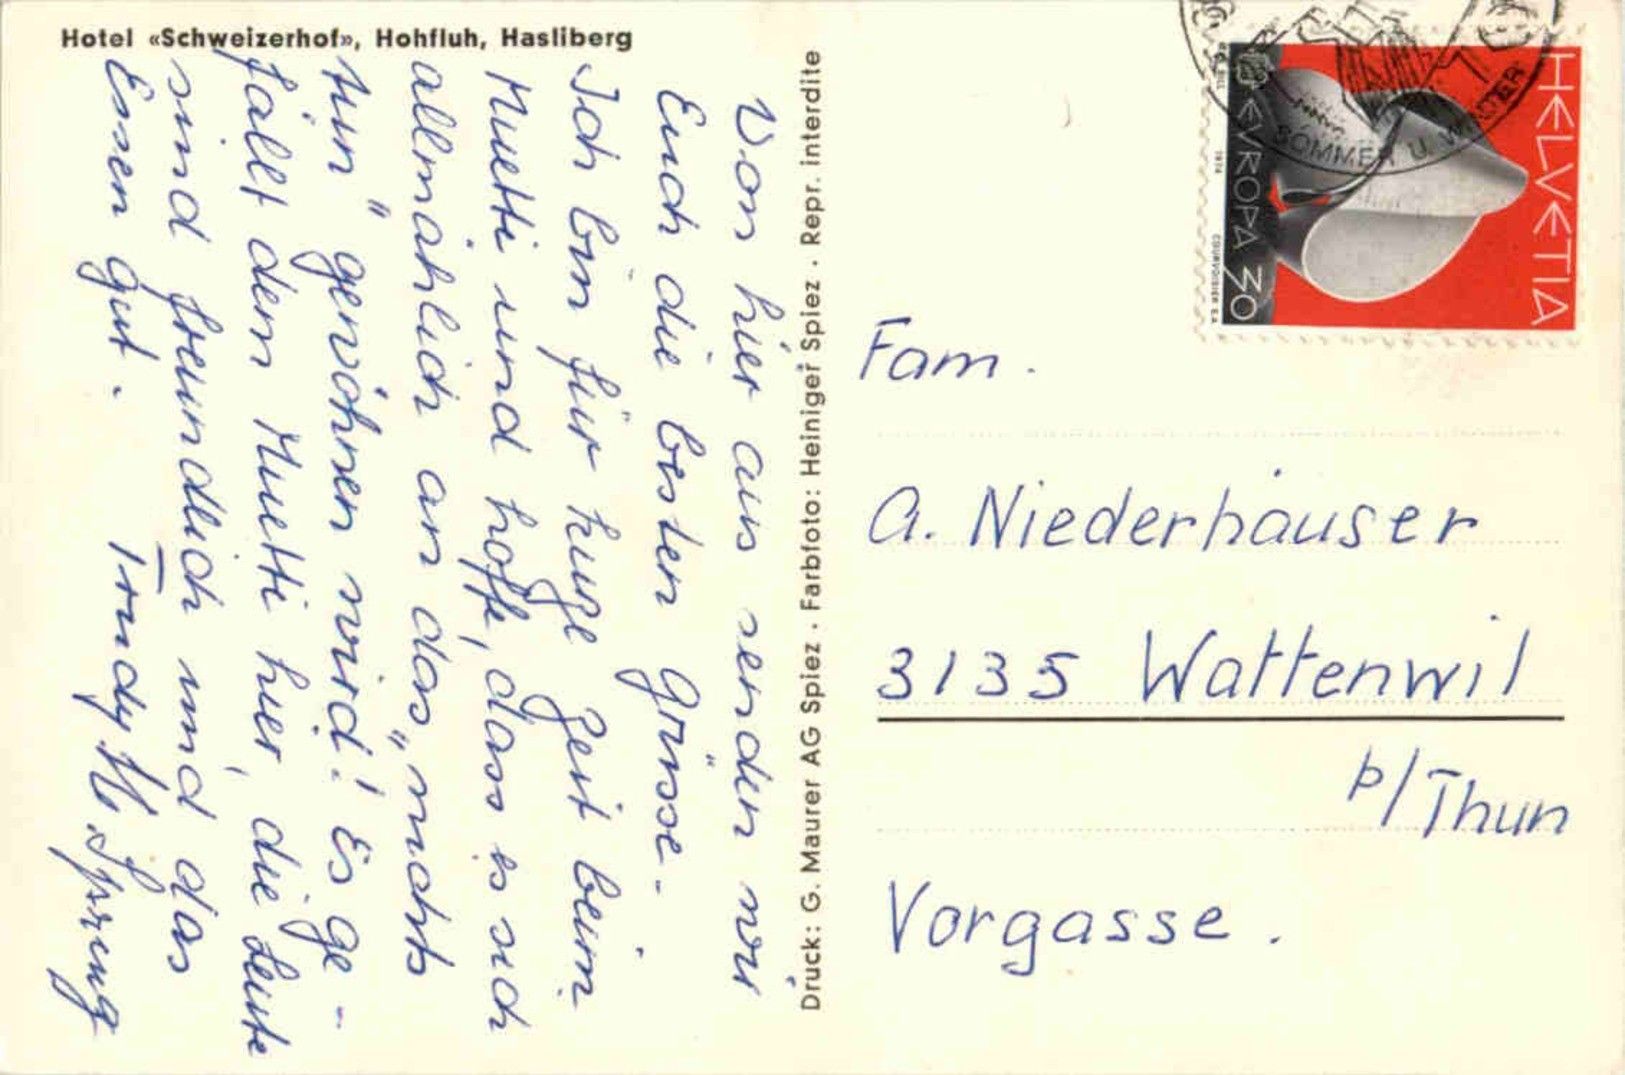 Hotel «Schweizerhof», Hohfluh, Hasliberg
Von hier aus senden wir
Euch die besten Grüsse. -
Ich bin für kurze Zeit beim
Muetti und hoffe, dass es sich
allmählich an das „nichts
tun" gewöhnen wird! Es ge -
fällt dem Muetti hier, die Leute
sind freundlich und das
Essen gut.
Trudy H. Sprung
Druck: G. Maurer AG Spiez · Farbfoto: Heiniger Spiez · Repr. interdite
HELVETIA
EVROPA 30
1974
COURVOISIER S.A.
SOMMER U. WINTER
Fam.
A. Niederhäuser
3135 Wattenwil
b/Thun
Vorgasse.